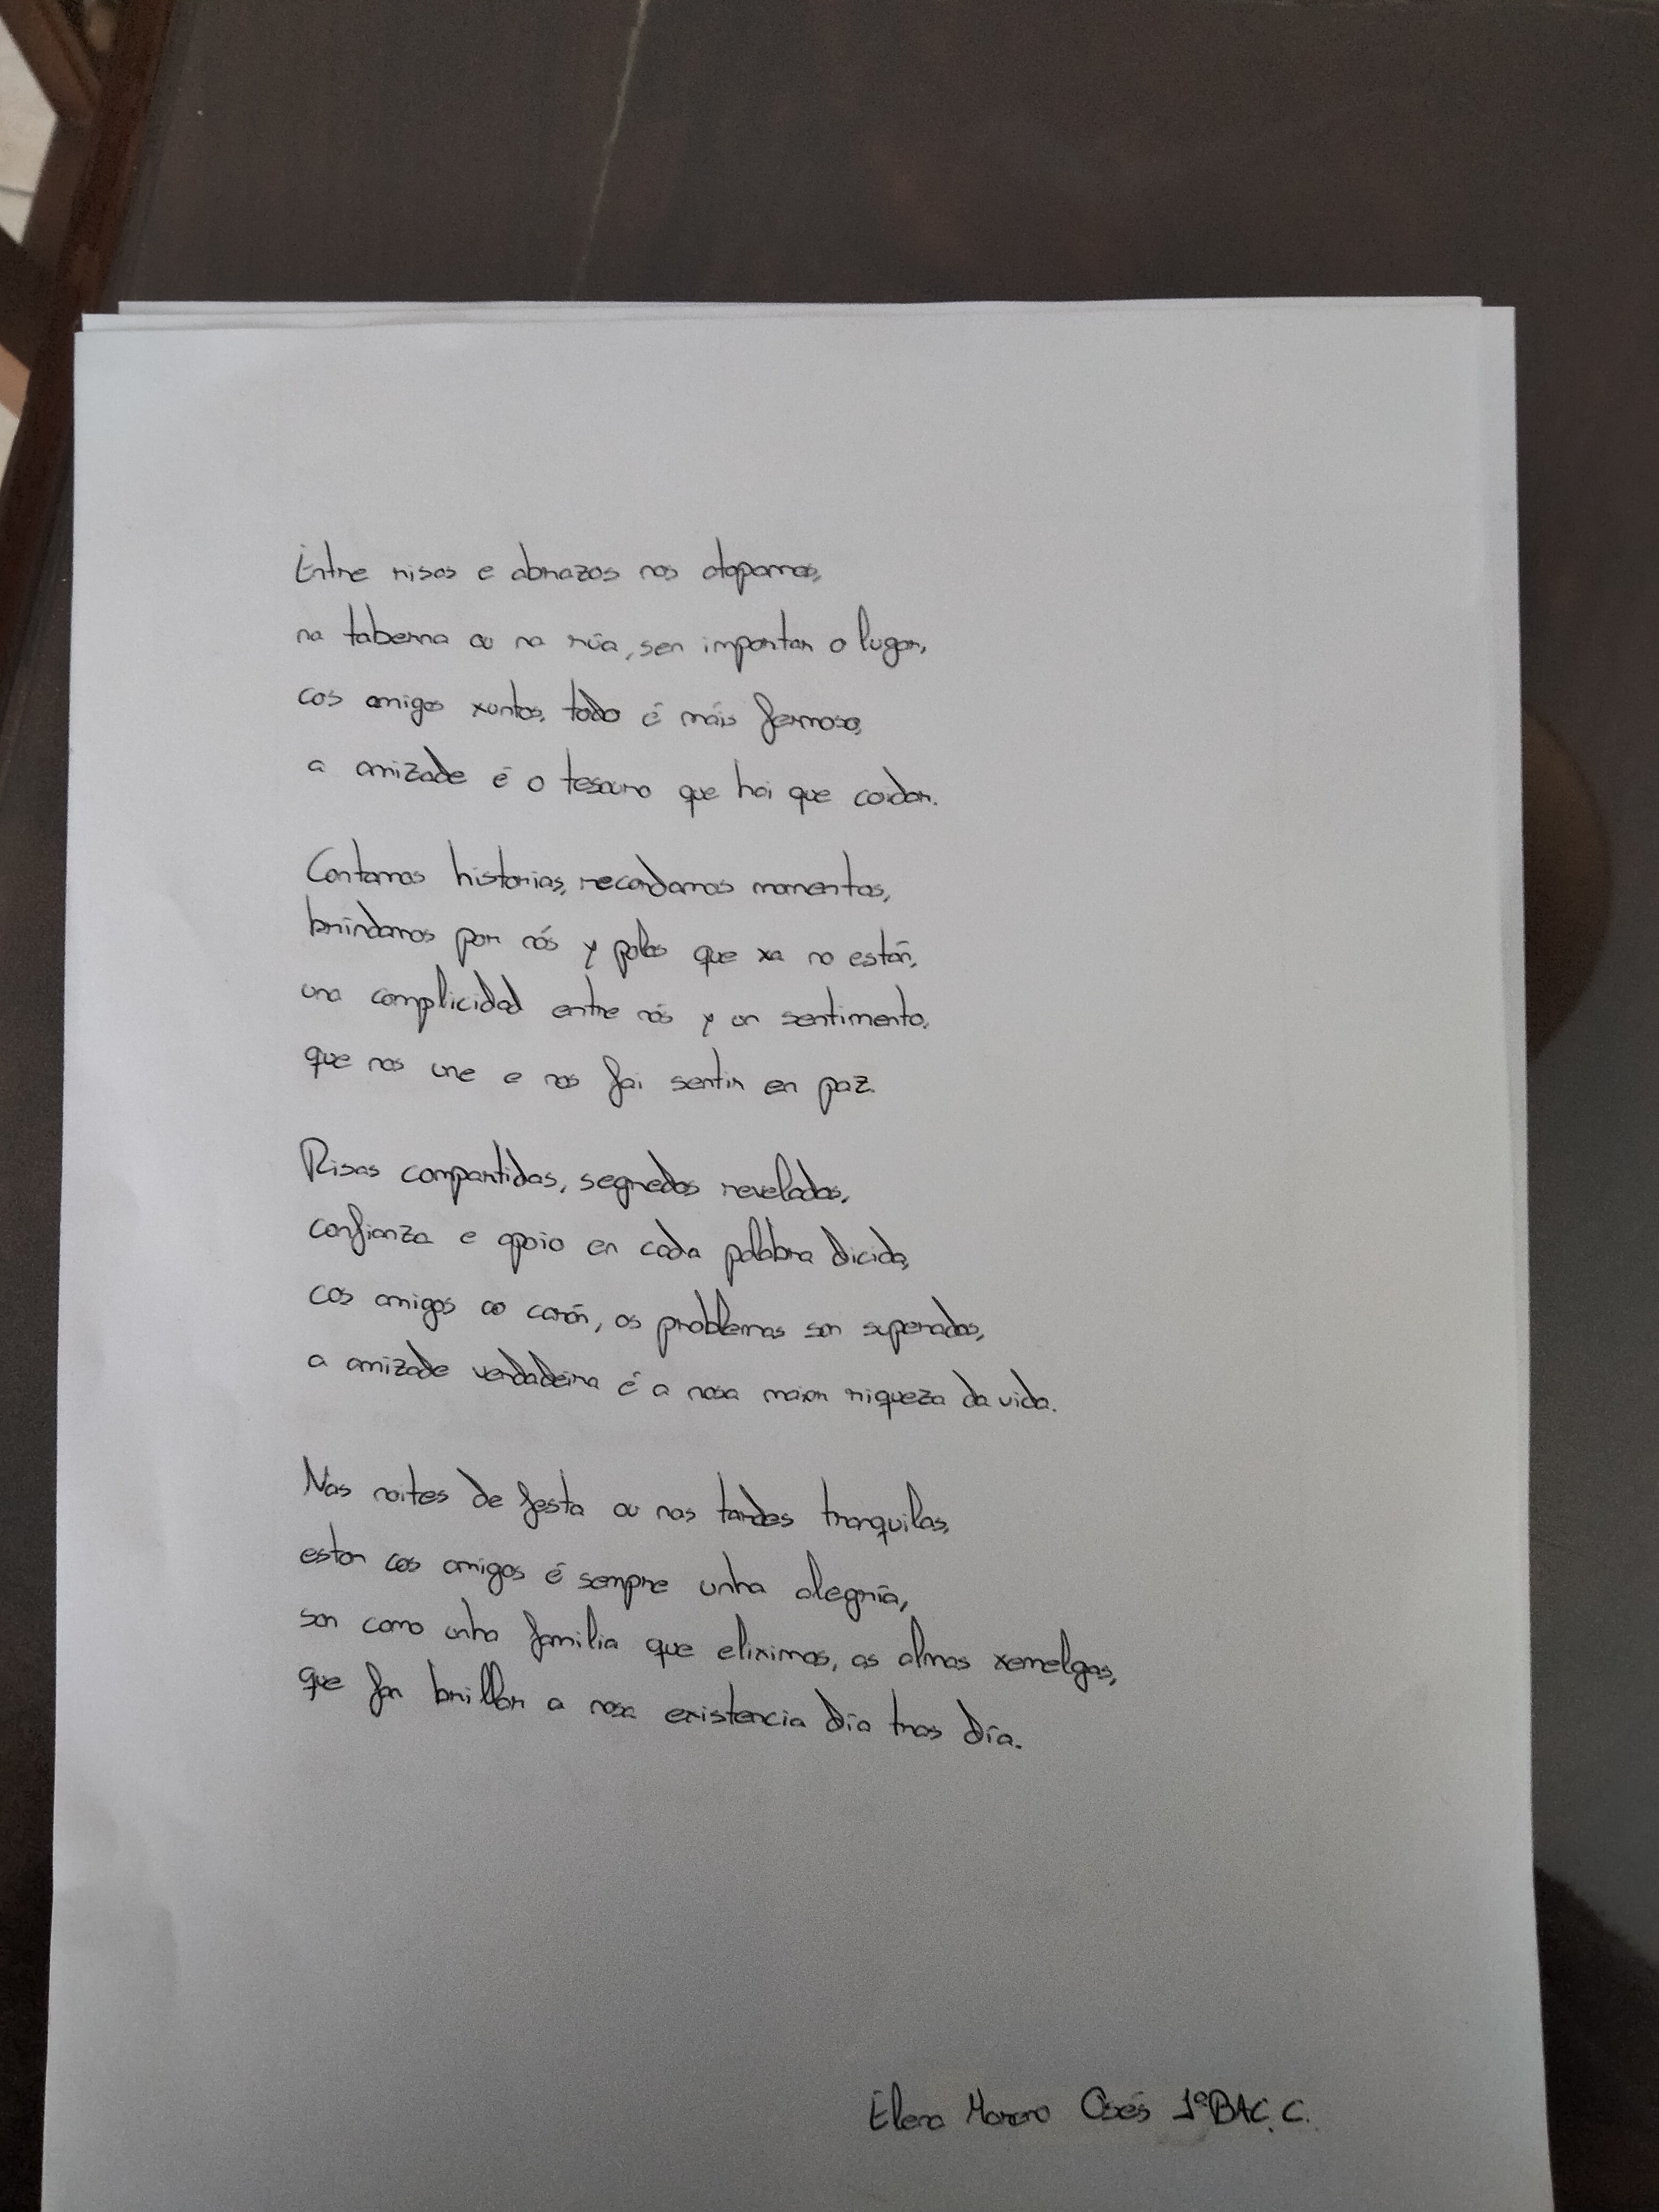 Entre risas e abrazos nos atopamos,
na taberna ou na rúa, sen importar o lugar,
cos amigos xuntos, todo é máis fermoso,
a amizade é o tesouro que hai que coidar.
Contamos historias, recordamos momentos,
brindamos por nós y polos que xa no están,
una complicidad entre nós y un sentimento,
que nos une e nos fai sentir en paz.
Risas compartidas, segredos revelados,
confianza e apoio en cada palabra dicida,
cos amigos ao carón, os problemas son superados,
a amizade verdadeira é a nosa maior riqueza da vida.
Nas noites de festa ou nas tardes tranquilas,
estar cos amigos é sempre unha alegría,
son como unha familia que eliximos, as almas xemelgas,
que fan brillar a nosa existencia día tras día.
Elena Moreno Osés 1º BAC. C.